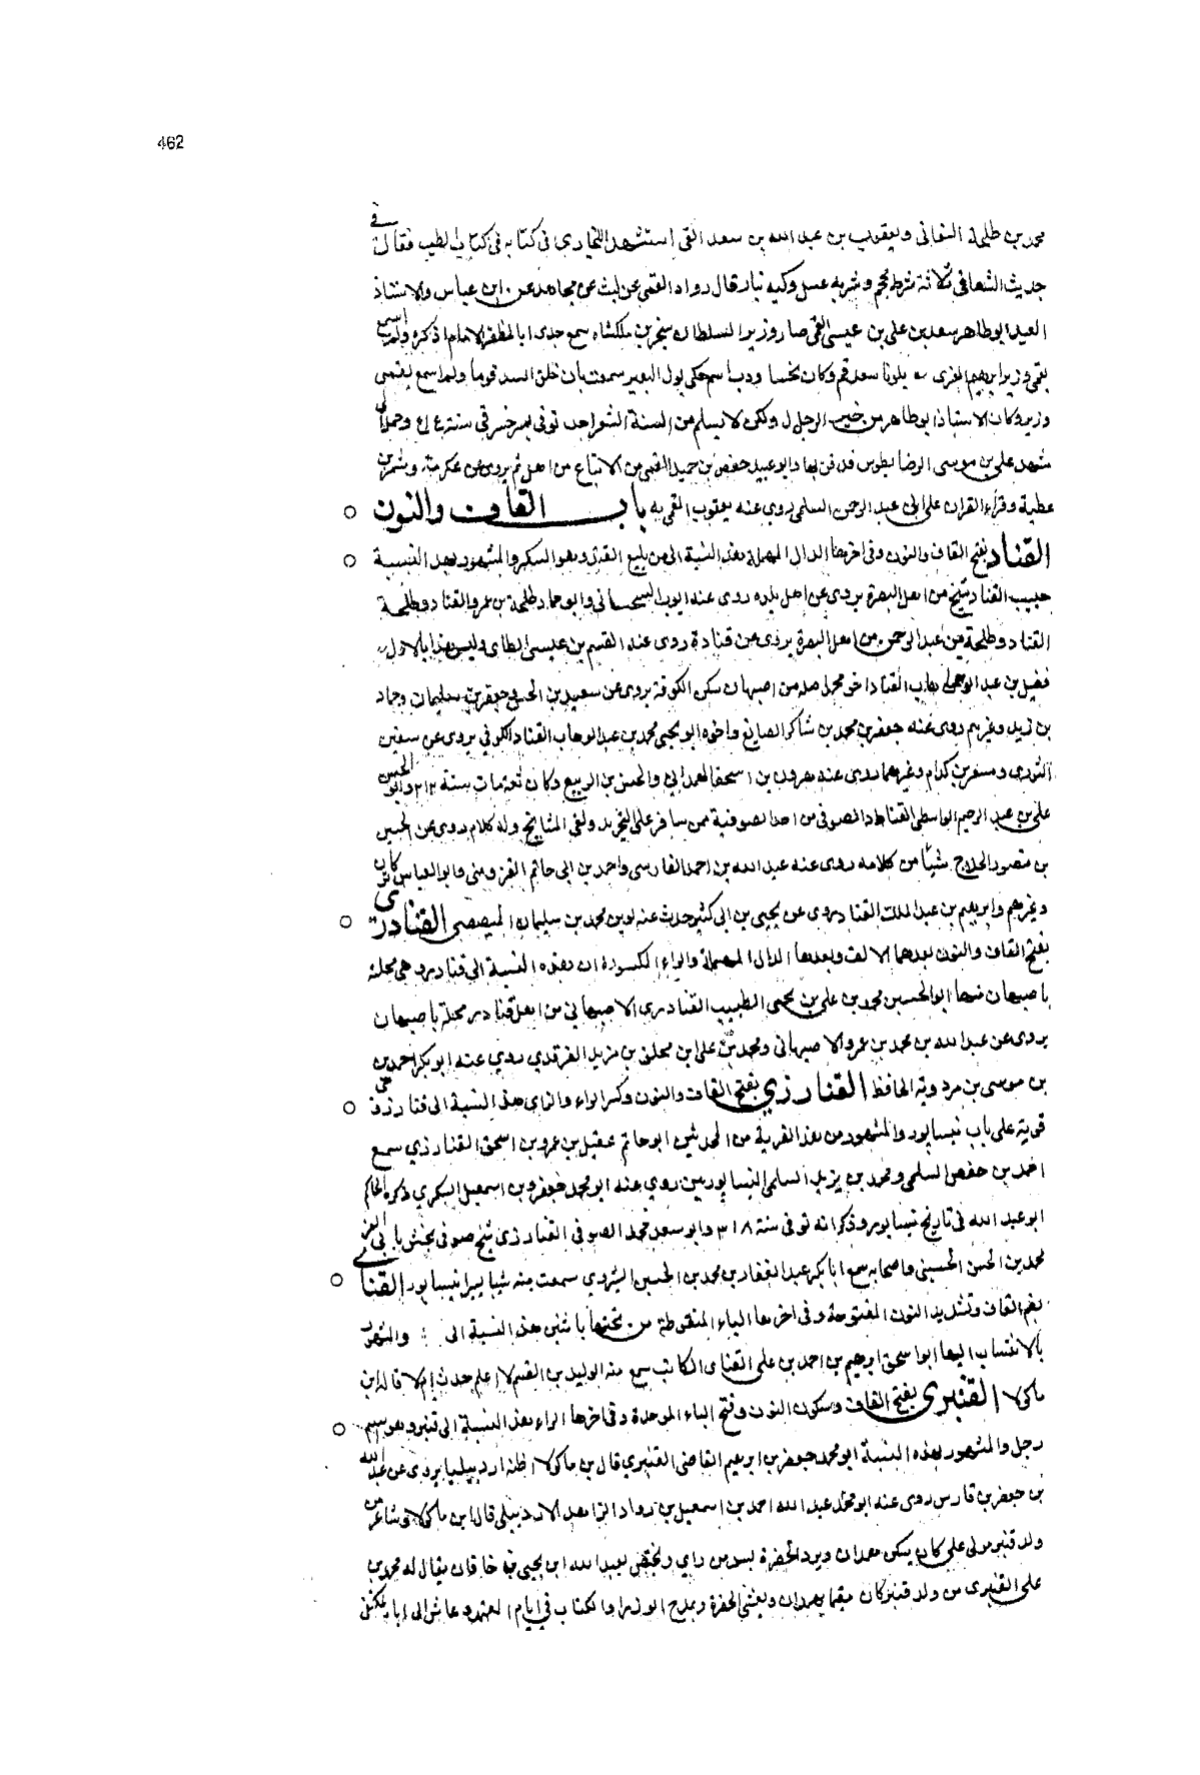 462
محمد بن طلحة النعانى ويعقوب بن عبد الله بن سعد القمى استشهد البخارى فى كتابه فى كتاب الطب فقال فى
حديث الشفا فى ثلاثة شرطة محجم وشربة عسل وكية نار قال رواه القمى عن ليث عن مجاهد عن ابن عباس والاستاذ
العميد ابو طاهر سعد بن على بن عيسى القمى صار وزير السلطان سنجر بن ملكشاه سمع جدى ابا المظفر الامام اذكره ولما سمع
بقمى وزير ابرهيم الغزى
وزير وكان الاستاذ ابو طاهر من خير الرجال ولكن لا يسلم من السنة الشعرا احد توفى بسرخس فى سنة وحمل الى
مشهد على بن موسى الرضا بطوس فدفن بها وابو عبيد حفص بن حميد القمى من الاتباع من اهل قم يروى عن عكرمة وشمر بن
عطية وقراء القران على ابى عبد الرحمن السلمى روى عنه يعقوب القمى باب القاف والنون
القناد بفتح القاف والنون وفى اخرها الدال المهملة هذه النسبة الى من يبيع القند وهو السكر والمشهور بهذه النسبة
حبيب القناد شيخ من اهل البصرة يروى عن اهل بلده روى عنه ايوب السجستانى وابو حماد طلحة بن عمرو القناد وطلحة
القناد وطلحة بن عبد الرحمن من اهل البصرة يروى عن قتادة روى عنه القسم بن عيسى الطاى وليس هذا بالاول
فضيل بن عبد الوهاب القناد اخو محمد اصله من اصبهان سكن الكوفة يروى عن سعيد بن الحسن وجعفر بن سليمان وحماد
بن زيد وغيرهم روى عنه جعفر بن محمد بن شاكر الصايغ واخوه ابو يحيى محمد بن عبد الوهاب القناد الكوفى يروى عن سفين
الثورى ومسعر بن كدام وغيرهما روى عنه هرون بن اسحق الهمدانى والحسن بن الربيع وكان ثقة مات سنة ٢١٢ وابو الحسن
على بن عبد الرحيم الواسطى القناد الصوفى من احد الصوفية ممن سافر على التجريد ولقى المشايخ وله كلام روى عن الحسين
بن منصور الحلاج شيئا من كلامه روى عنه عبد الله بن احمد الفارسى واحمد بن ابى حاتم القزوينى وابو العباس
وغيرهم وابرهيم بن عبد الملك القناد يروى عن يحيى بن ابى كثير حدث عنه لوين محمد بن سليمان المصيصى القنادرى
بفتح القاف والنون بعدهما الالف وبعدها الدال المهملة والراء المكسورة ان هذه النسبة الى قنادر وهى محلة
باصبهان منها ابو الحسين محمد بن على بن يحيى الطبيب القنادرى الاصبهانى من اهل قنادر محلة باصبهان
يروى عن عبد الله بن محمد بن عمرو الاصبهانى ومحمد بن على ابن مخلد بن مزيد الفرقدى روى عنه ابو بكر احمد بن
بن موسى بن مردوية الحافظ القنارزي بفتح القاف والنون وكسر الراء والزاى هذه النسبة الى قنارزف هى
قرية على باب نيسابور والمشهور من هذه القرية من المحدثين ابو حاتم عقيل بن عمرو بن اسحق القنارزي سمع
احمد بن حفص السلمى ومحمد بن يزيد السلمى النيسابوريين روى عنه ابو محمد جعفر بن اسمعيل السكري ذكره الحاكم
ابو عبد الله فى تاريخ نيسابور وذكر انه توفى سنة ٣١٨ وابو سعد محمد الصوفى القنارزى شيخ صوفى
محمد بن الحسن الحسينى واصحابه سمع ابا بكر عبد الغفار بن محمد بن الحسين الشيروي سمعت منه شيا يسيرا نيسابور القناى
بضم القاف وتشديد النون المفتوحة وفى اخرها الياء المنقوطة من تحتها باثنتين هذه النسبة الى : والمشهور
بالانتساب اليها ابو اسحق ابرهيم بن احمد بن على القناى الكاتب سمع منه الوليد بن القسم لا اعلم حدث ام لا قاله ابن
ماكولا القنبرى بفتح القاف وسكون النون وفتح الباء الموحدة وفى اخرها الراء هذه النسبة الى قنبر وهو اسم
رجل والمشهور بهذه النسبة ابو محمد جعفر بن ابرهيم القاضى القنبري قال بن ماكولا اظنه اردبيليا يروى عن عبد الله
بن جعفر بن فارس روى عنه ابو محمد عبد الله احمد بن اسمعيل بن رواد الزاهد الاردبيلى قال ابن ماكولا وشاعر من
ولد قنبر مولى على كان يسكن همدان ويرد الحضرة بسر من راي ويختص بعبد الله ابن يحيى بن خاقان يقال له محمد بن
على القنبرى من ولد قنبر كان مقيما بهمدان ويغشى الحضرة ويمدح الوزرا والكتاب فى ايام المعتمد وعاش الى ايام المكتفى